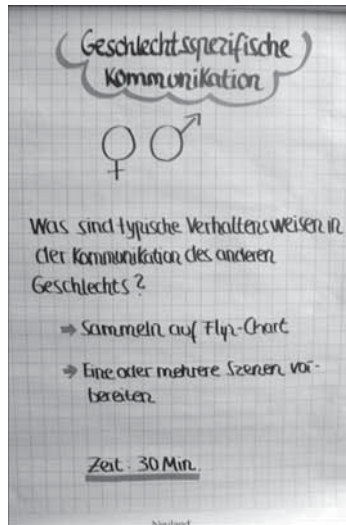 Geschlechtsspezifische
Kommunikation
Was sind typische Verhaltensweisen in
der Kommunikation des anderen
Geschlechts?
Sammeln auf Flip-Chart
Eine oder mehrere Szenen vor-
bereiten
Zeit: 30 Min.
Neuland